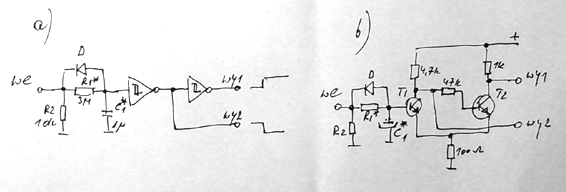 a)
D
we
R1*
3M
R2
10k
C1*
1μ
wy1
wy2
b)
+
4,7k
1k
D
47k
wy1
we
T1
T2
R1*
R2
C1*
wy2
100Ω